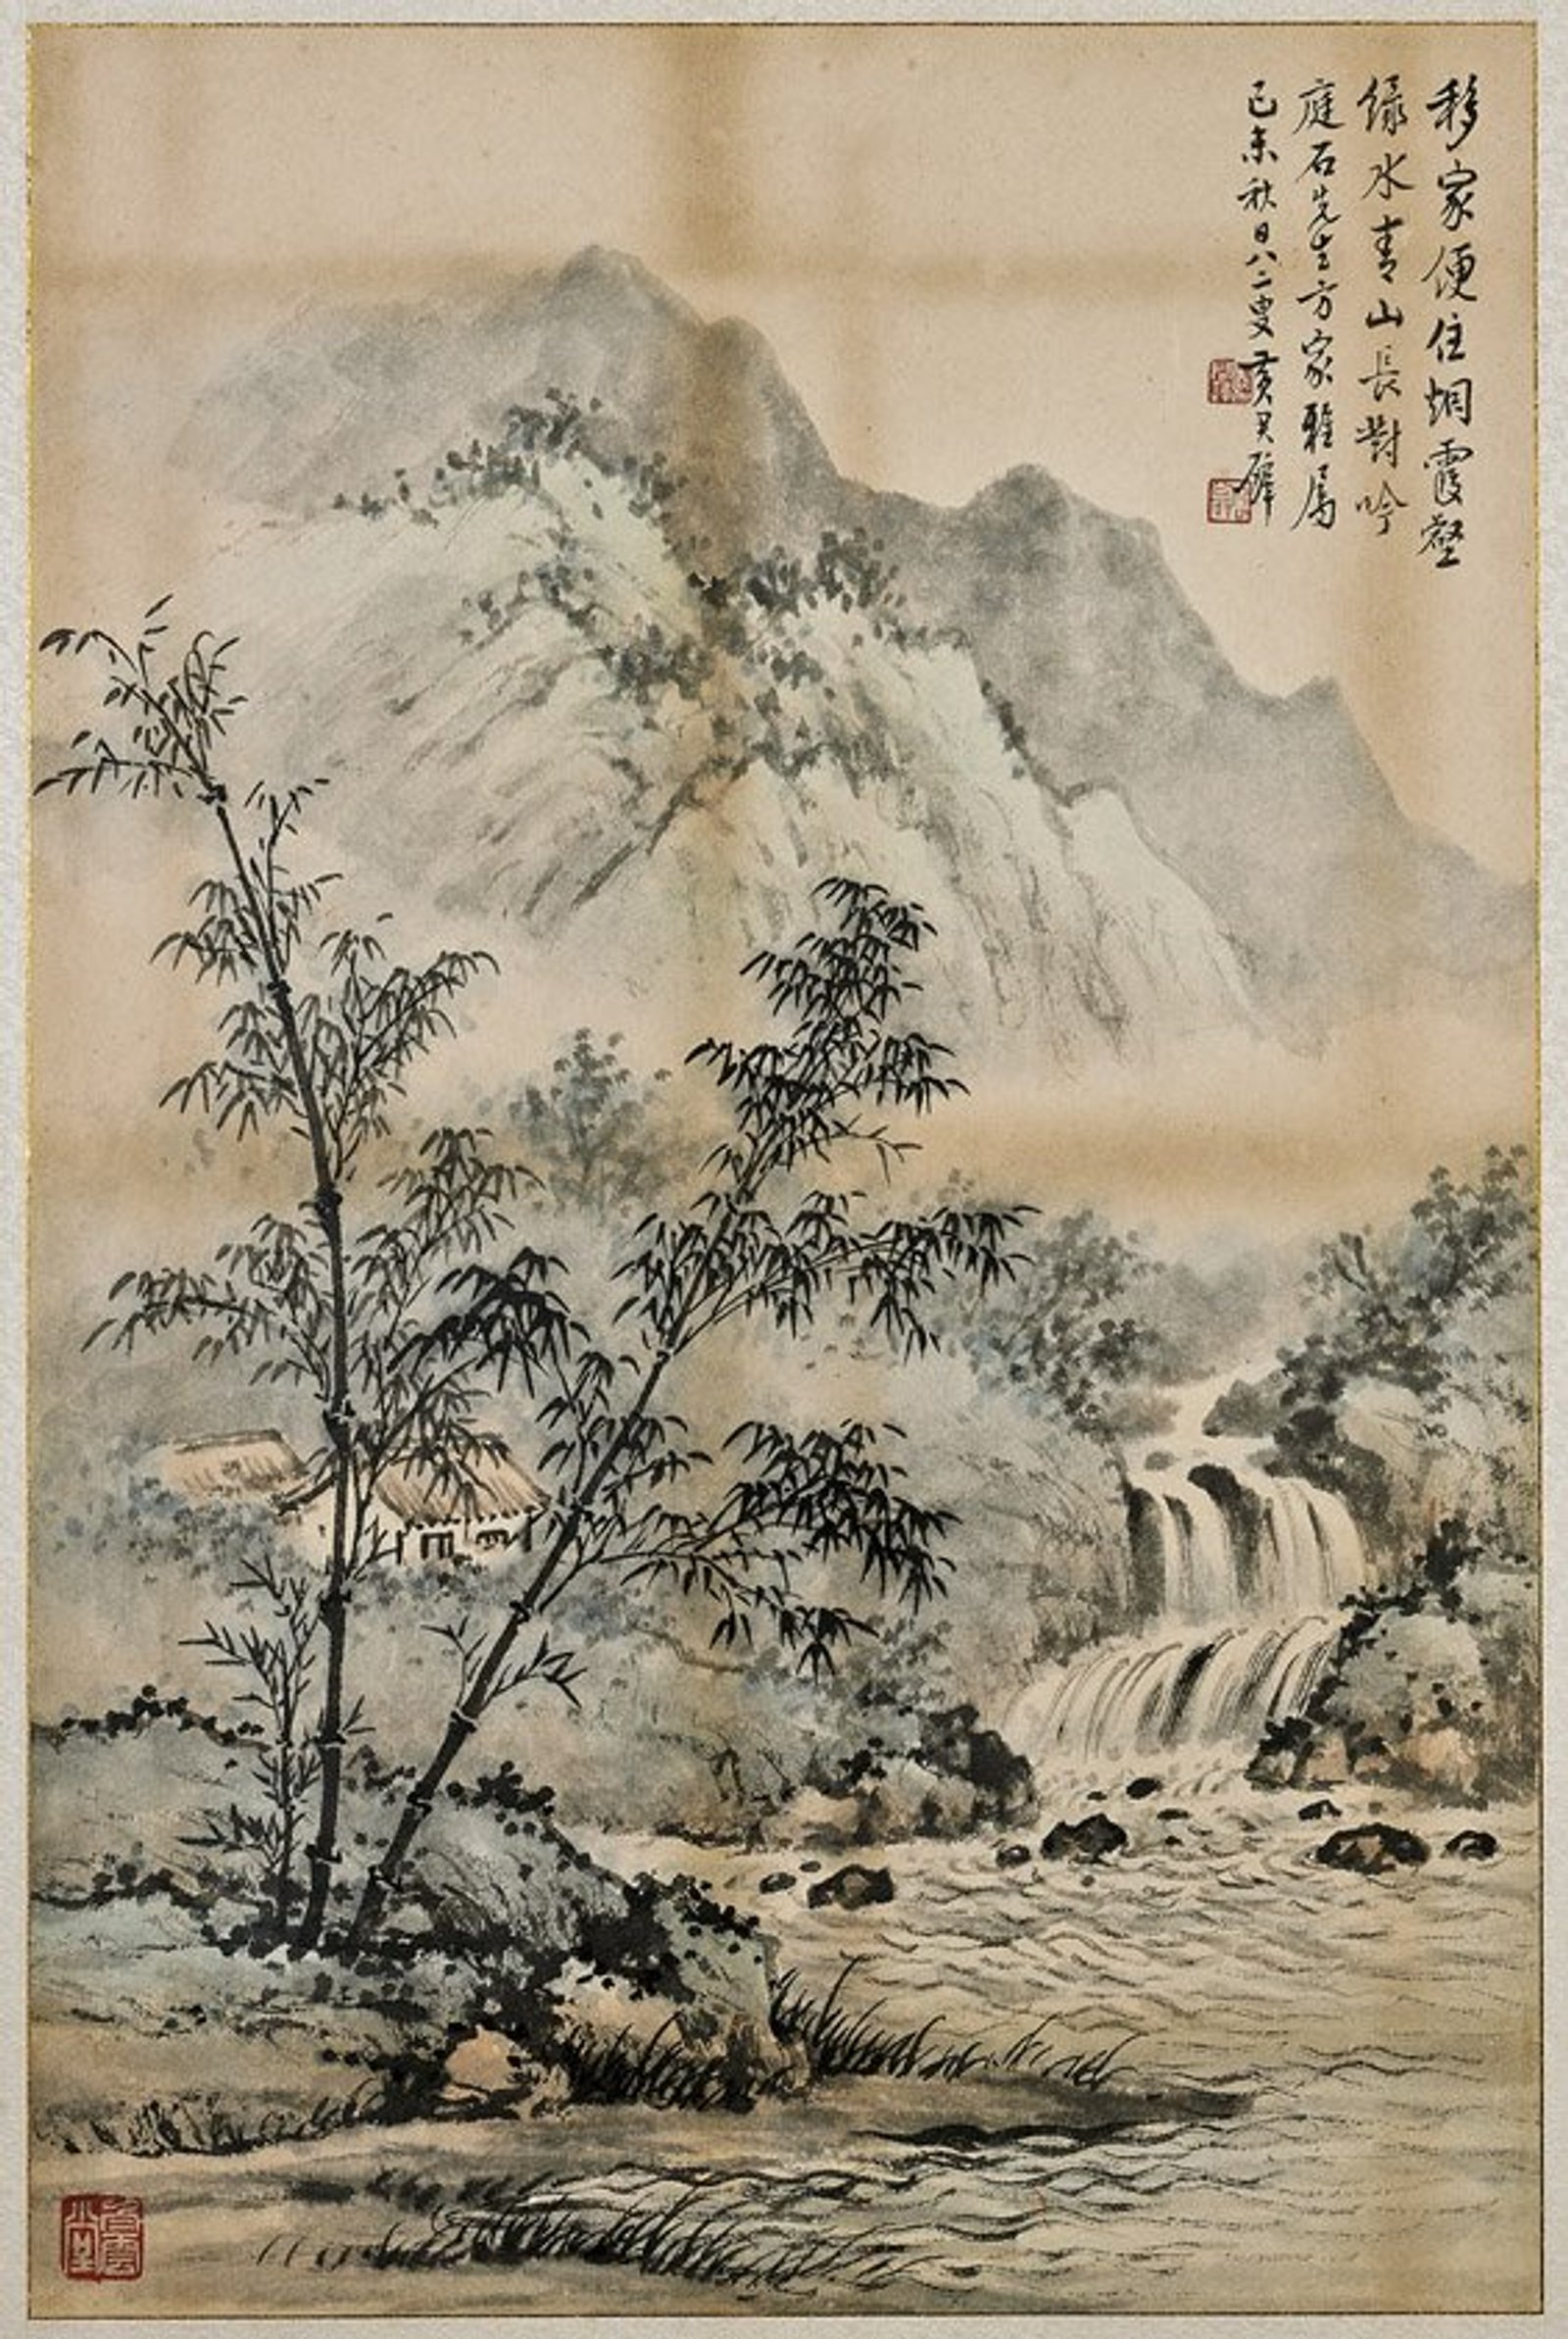 移家便住烟霞壑
綠水青山長對吟
庭石先生方家雅屬
己未秋日八二叟黃君璧
白雲堂